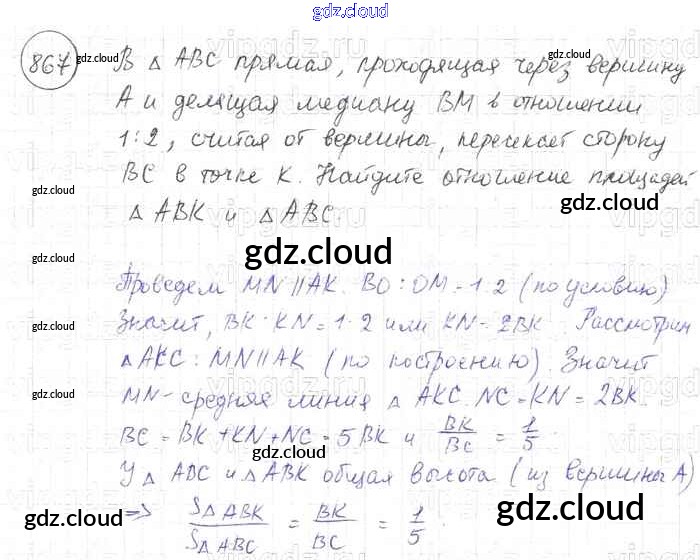 gdz.cloud
867 gdz.cloud В △ ABC прямая, проходящая через вершину
A и делящая медиану BM в отношении
1:2, считая от вершины, пересекает сторону
gdz.cloud BC в точке K. Найдите отношение площадей gdz.cloud
△ ABK и △ ABC.
gdz.cloud
gdz.cloud Проведем MN || AK. BO : OM = 1:2 (по условию)
gdz.cloud Значит, BK : KN = 1:2 или KN = 2BK. Рассмотрим gdz.cloud
△ AKC : MN || AK (по построению). Значит
gdz.cloud MN - средняя линия △ AKC. NC = KN = 2BK.
BC = BK + KN + NC = 5BK и BK/BC = 1/5.
У △ ABC и △ ABK общая высота (из вершины A)
gdz.cloud => S△ABK/S△ABC = BK/BC = 1/5. gdz.cloud